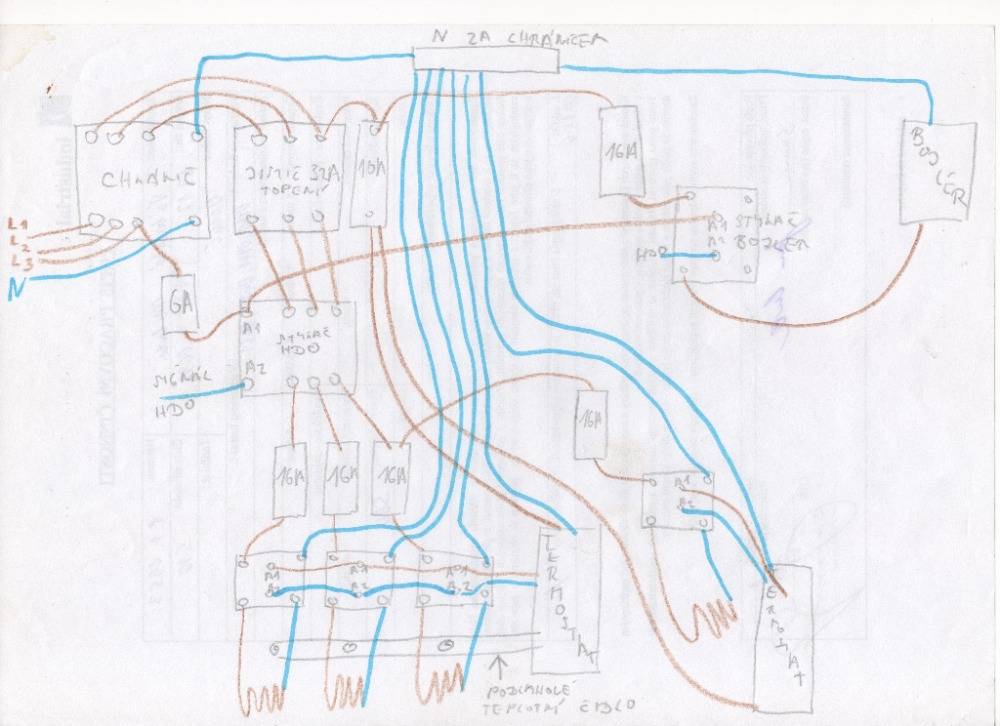 N ZA CHRÁNIČEM
CHRÁNIČ
JISTIČ 32A
TOPENÍ
10A
16A
BOJLÉR
L1
L2
L3
N
6A
A1
STYKAČ
A2
BOJLER
HDO
A1
STYKAČ
HDO
A2
SIGNÁL
HDO
16A
16A
16A
16A
A1
A2
A1
A1
A1
A2
A2
A2
TERMOSTAT
TERMOSTAT
PODLAHOLÉ
TEPLOTNÍ ČIDLO